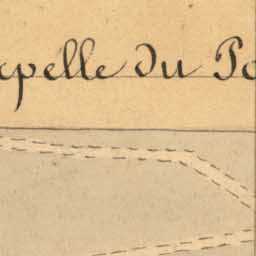 apelle du Po